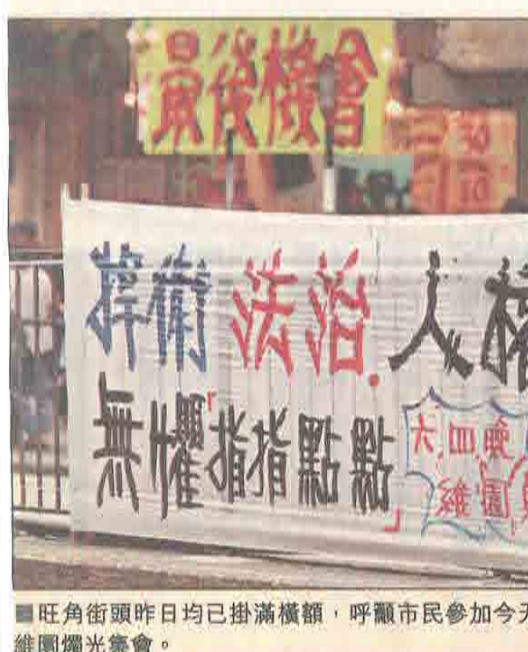 最後機會
捍衛 法治.人權
無懼「指指點點」
六四晚
維園
■旺角街頭昨日均已掛滿橫額,呼籲市民參加今天
維園燭光集會。